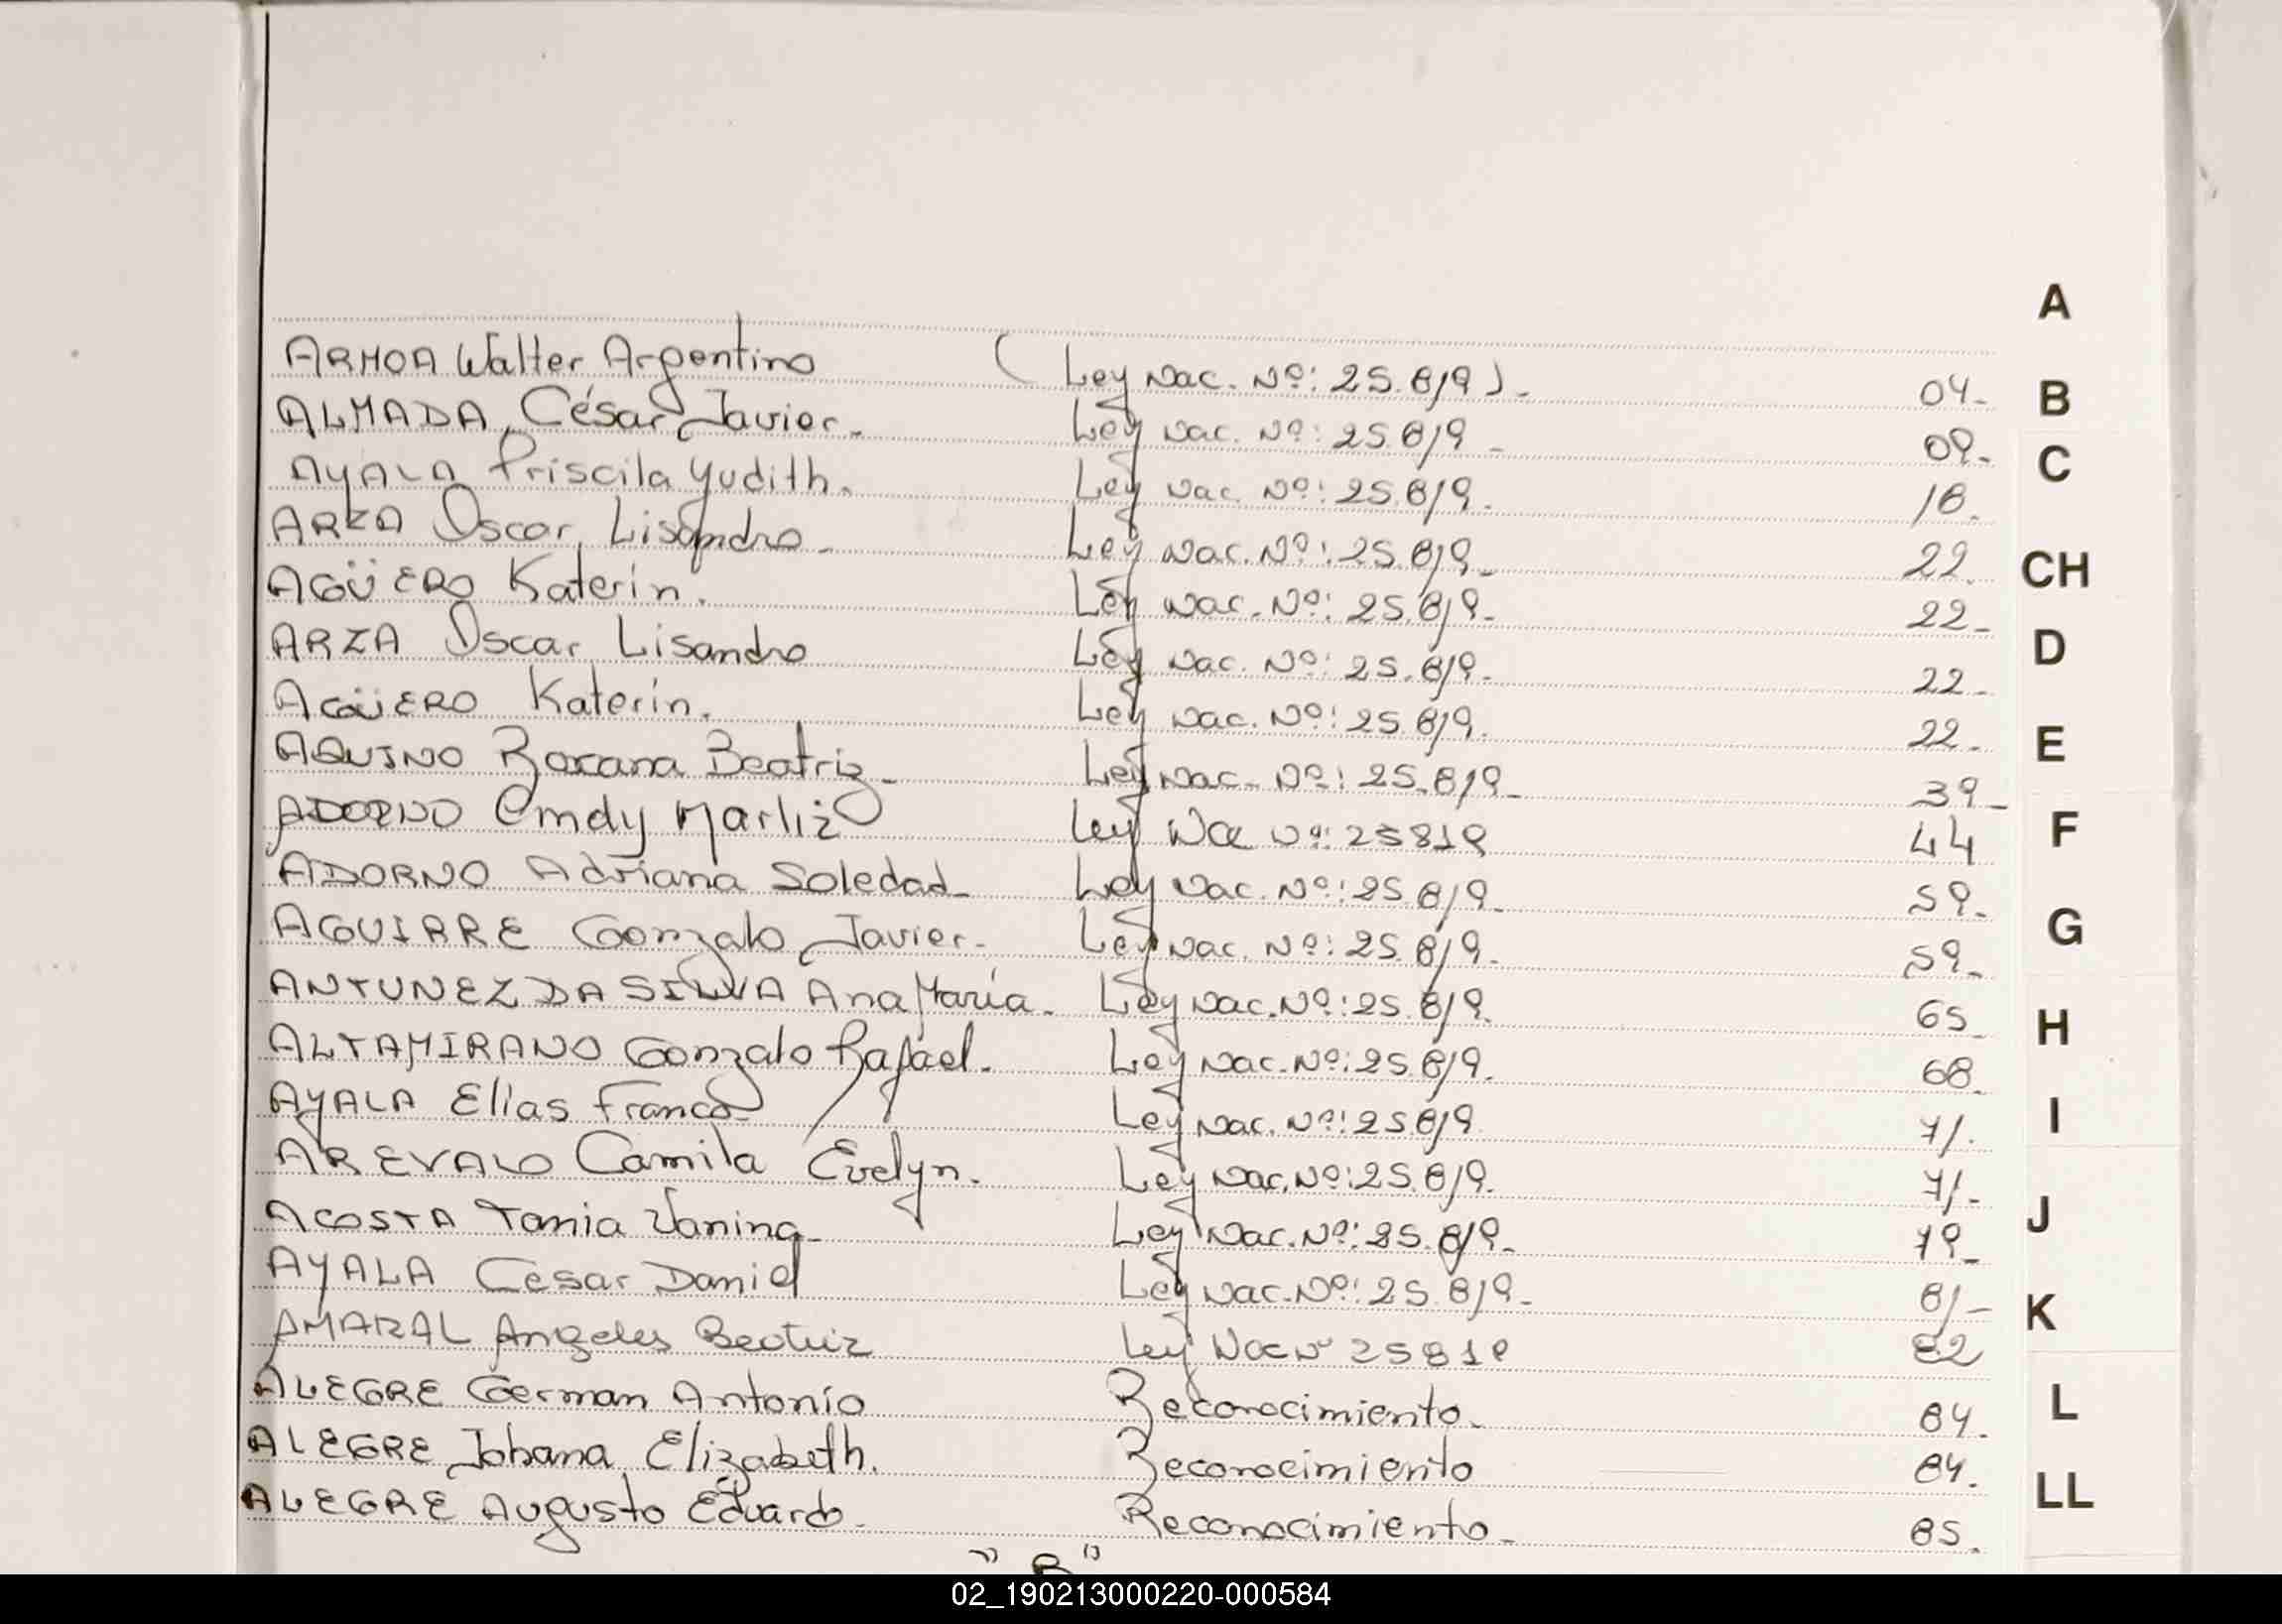 A
ARMOA Walter Argentino (Ley Nac. Nº: 25.819).- 04.-
B
ALMADA, César Javier.- Ley Nac. Nº: 25.819.- 09.-
C
AYALA Priscila Yudith. Ley Nac. Nº: 25.819. 18.
ARZA Oscar Lisandro.- Ley Nac. Nº: 25.819.- 22.
CH
AGÜERO Katerin. Ley Nac. Nº: 25.819.- 22.-
D
ARZA Oscar Lisandro Ley Nac. Nº: 25.819.- 22.-
AGÜERO Katerin. Ley Nac. Nº: 25.819. 22.-
E
AQUINO Roxana Beatriz.- Ley Nac. Nº: 25.819.- 39.-
F
ADORNO Emdy Marliz Ley Nac Nº: 25819 44
ADORNO Adriana Soledad.- Ley Nac. Nº: 25.819.- 59.-
G
AGUIRRE Gonzalo Javier.- Ley Nac. Nº: 25.819.- 59.-
ANTUNEZ DA SILVA Ana María.- Ley Nac. Nº: 25.819. 65.-
H
ALTAMIRANO Gonzalo Rafael.- Ley Nac. Nº: 25.819.- 68.-
I
AYALA Elías Franco.- Ley Nac. Nº: 25.819 71.-
AREVALO Camila Evelyn. Ley Nac. Nº: 25.819. 71.-
J
ACOSTA Tania Vanina.- Ley Nac. Nº: 25.819.- 79.-
AYALA Cesar Daniel Ley Nac. Nº: 25.819.- 81.-
K
AMARAL Angeles Beatriz Ley Nac Nº 25819 82
ALEGRE German Antonio Reconocimiento.- 84.-
L
ALEGRE Johana Elizabeth. Reconocimiento 84.-
LL
ALEGRE Augusto Eduardo.- Reconocimiento.- 85.
"B"
02_190213000220-000584